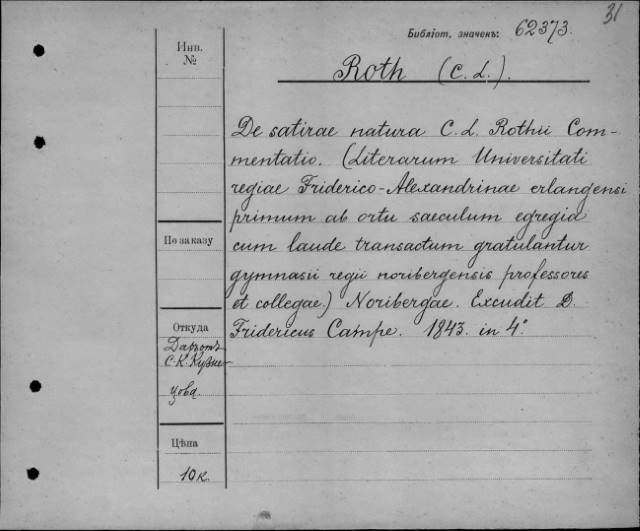 31
Библіот. значекъ: 62373.
Инв.
№
Roth (C. L.).
De satirae natura C. L. Rothii Com-
mentatio. (Literarum Universitati
regiae Friderico-Alexandrinae erlangensi
primum ab ortu saeculum egregia
По заказу
cum laude transactum gratulantur
gymnasii regii noribergensis professores
et collegae.) Noribergae. Excudit D.
Fridericus Campe. 1843. in 4°.
Откуда
Даръ отъ
С. К. Кузне-
цова
Цѣна
10 к.